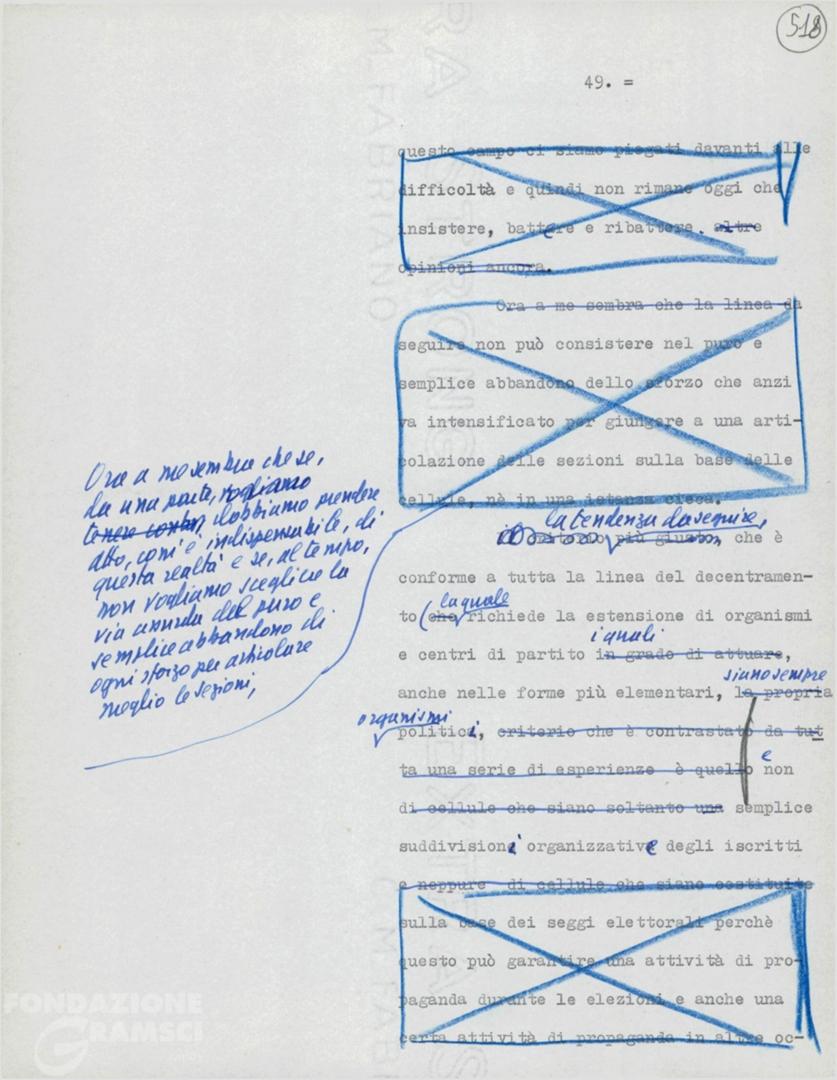 518
49. =
questo campo ci siamo piegati davanti alle
difficoltà e quindi non rimane oggi che
insistere, battere e ribattere. altre
opinioni ancora.
Ora a me sembra che la linea da
seguire non può consistere nel puro e
semplice abbandono dello sforzo che anzi
va intensificato per giungere a una arti-
colazione delle sezioni sulla base delle
cellule, nè in una istanza cieca.
Ora a me sembra che se,
da una parte, vogliamo
tenere conto, dobbiamo prendere
atto, com'è indispensabile, di
questa realtà e se, al tempo,
non vogliamo scegliere la
via assurda del puro e
semplice abbandono di
ogni sforzo per articolare
meglio le sezioni,
la tendenza da seguire,
più giusto, che è
conforme a tutta la linea del decentramen-
la quale
to che richiede la estensione di organismi
i quali
e centri di partito in grado di attuare,
siano sempre
anche nelle forme più elementari, la propria
organismi
politici, criterio che è contrastato da tut
e
ta una serie di esperienze è quello non
di cellule che siano soltanto una semplice
suddivisioni organizzative degli iscritti
e neppure di cellule che siano costituite
sulla base dei seggi elettorali perchè
questo può garantire una attività di pro-
paganda durante le elezioni e anche una
certa attività di propaganda in altre oc-
FONDAZIONE
GRAMSCI